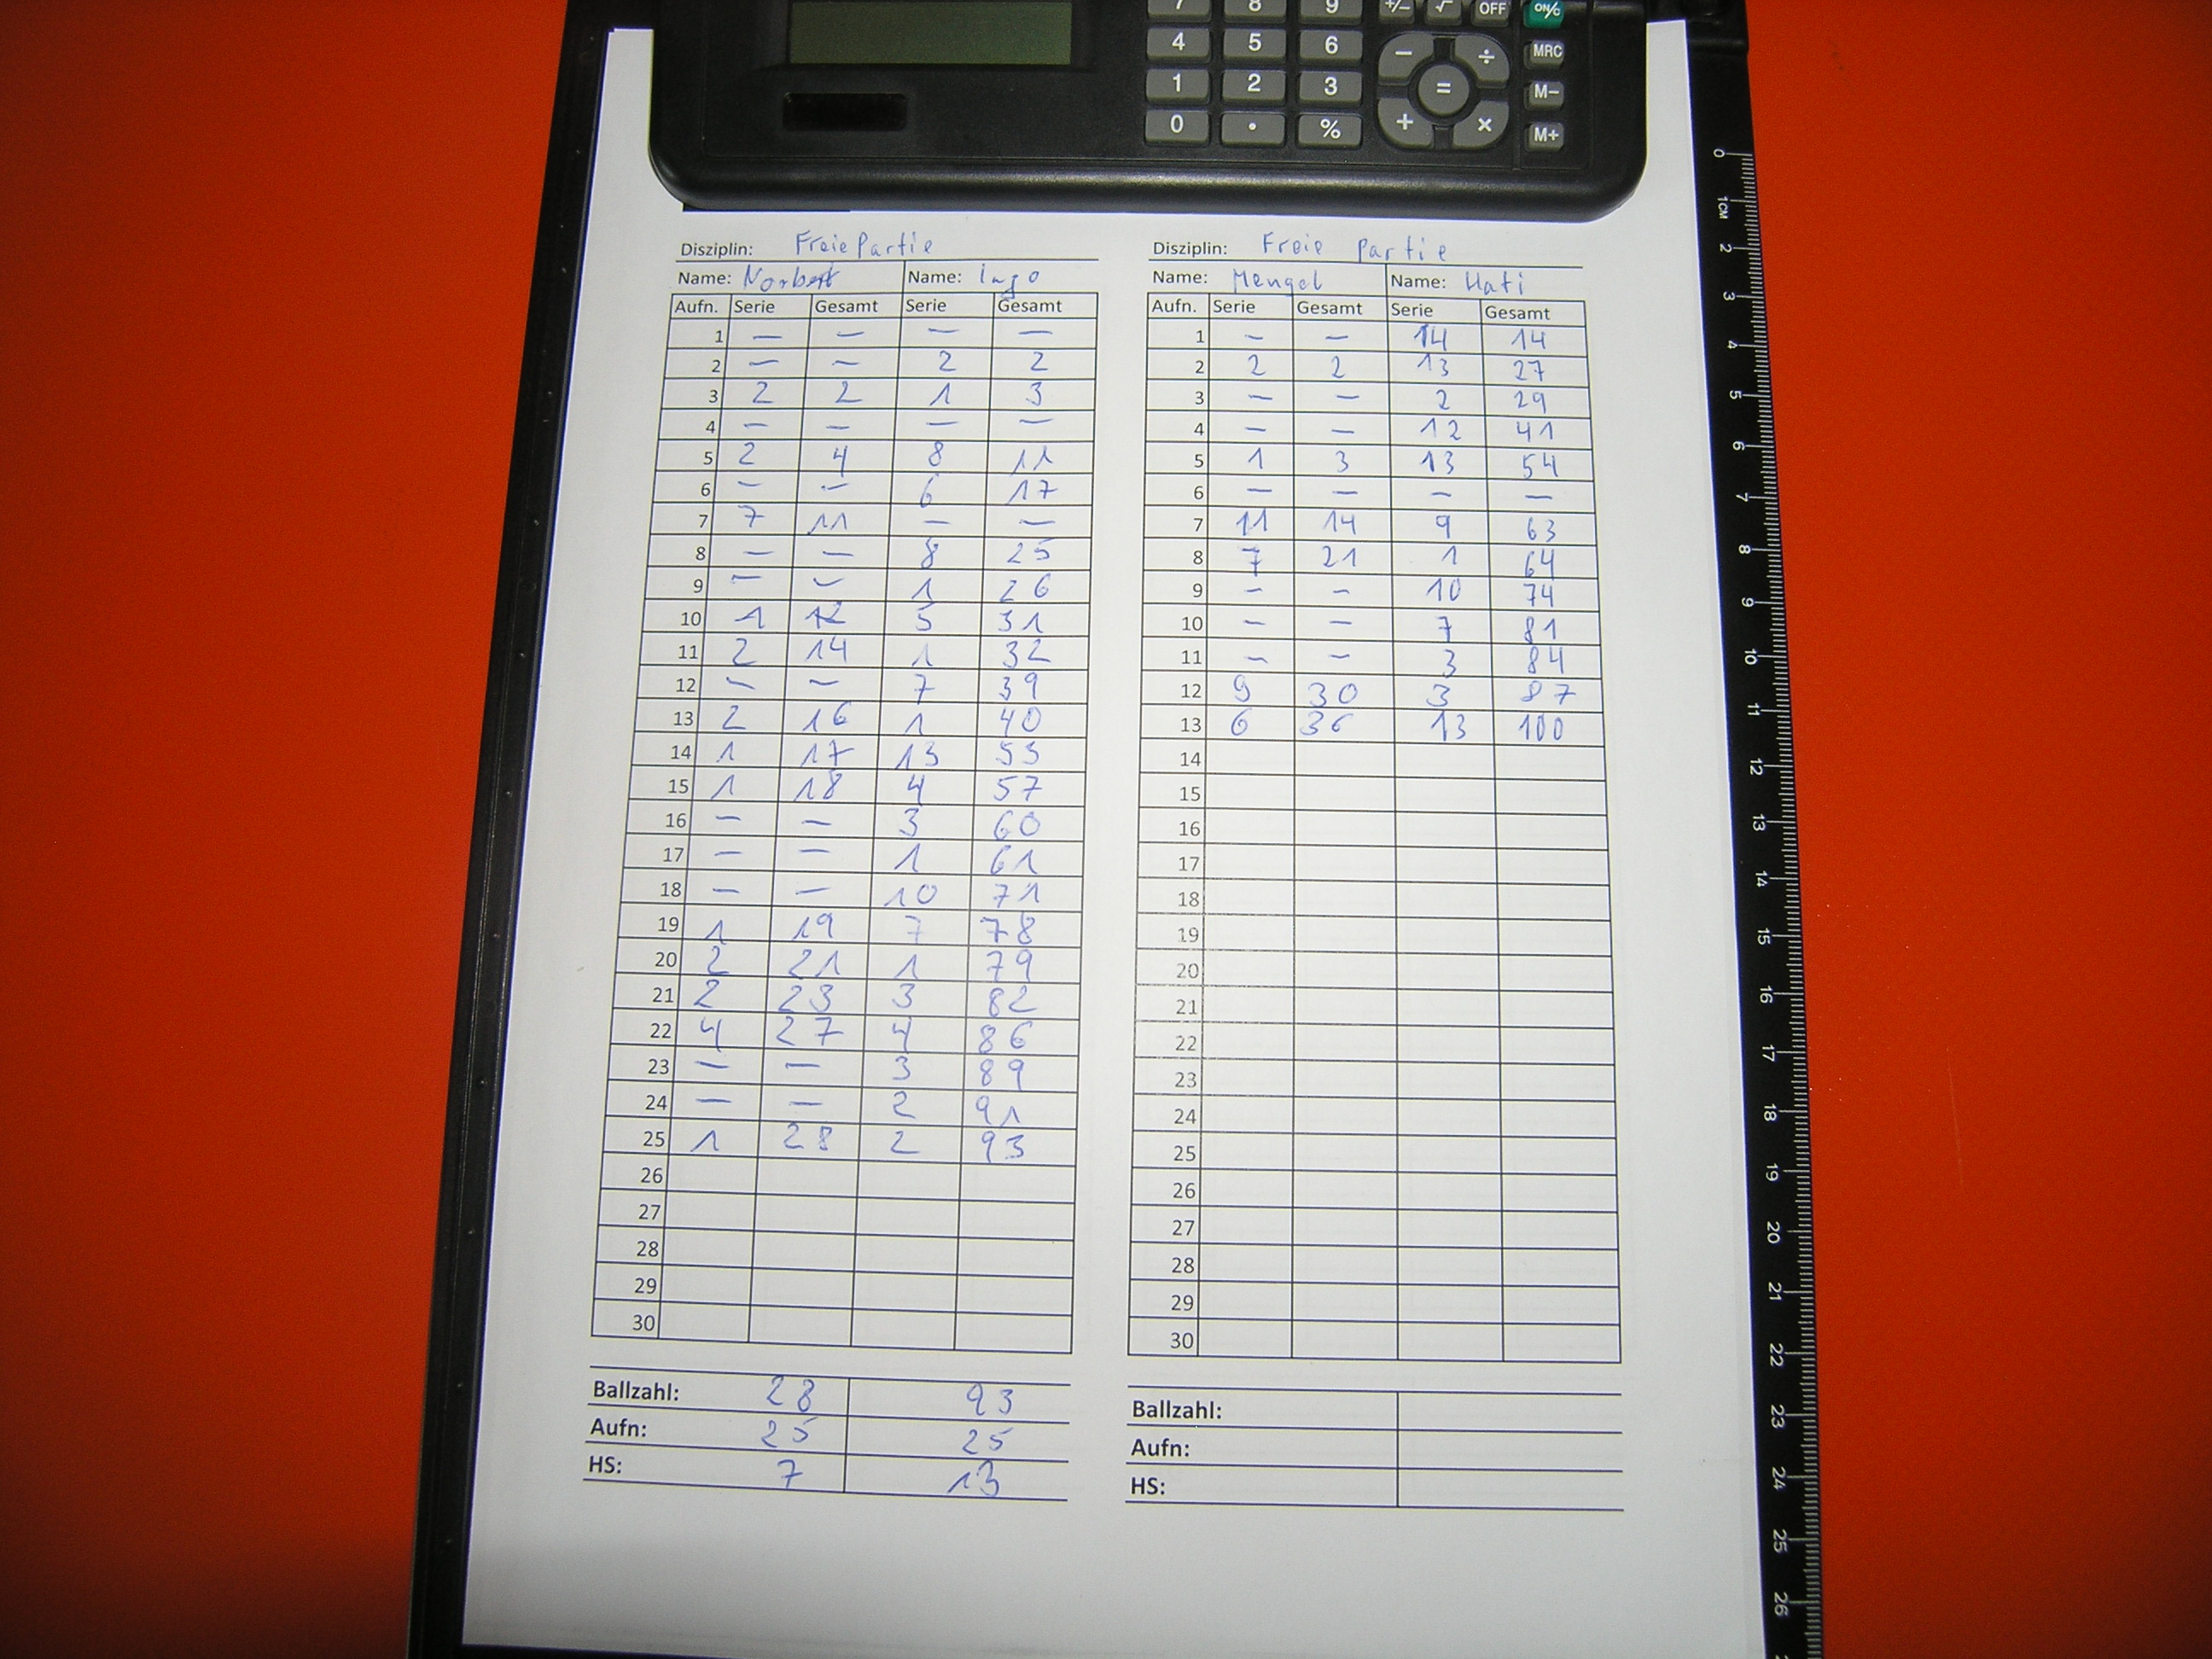 7 8 9 +/− √ OFF ON/C
4 5 6 − ÷ MRC
1 2 3 = M−
0 • % + × M+
Disziplin: Freie Partie
Name: Norbert Name: Ingo
Aufn. Serie Gesamt Serie Gesamt
1 — — — —
2 — — 2 2
3 2 2 1 3
4 — — — —
5 2 4 8 11
6 — — 6 17
7 7 11 — —
8 — — 8 25
9 — — 1 26
10 1 12 5 31
11 2 14 1 32
12 — — 7 39
13 2 16 1 40
14 1 17 13 53
15 1 18 4 57
16 — — 3 60
17 — — 1 61
18 — — 10 71
19 1 19 7 78
20 2 21 1 79
21 2 23 3 82
22 4 27 4 86
23 — — 3 89
24 — — 2 91
25 1 28 2 93
26
27
28
29
30
Ballzahl: 28 93
Aufn: 25 25
HS: 7 13
Disziplin: Freie Partie
Name: Mengel Name: Hati
Aufn. Serie Gesamt Serie Gesamt
1 — — 14 14
2 2 2 13 27
3 — — 2 29
4 — — 12 41
5 1 3 13 54
6 — — — —
7 11 14 9 63
8 7 21 1 64
9 — — 10 74
10 — — 7 81
11 — — 3 84
12 9 30 3 87
13 6 36 13 100
14
15
16
17
18
19
20
21
22
23
24
25
26
27
28
29
30
Ballzahl:
Aufn:
HS:
0
1CM
2
3
4
5
6
7
8
9
10
11
12
13
14
15
16
17
18
19
20
21
22
23
24
25
26